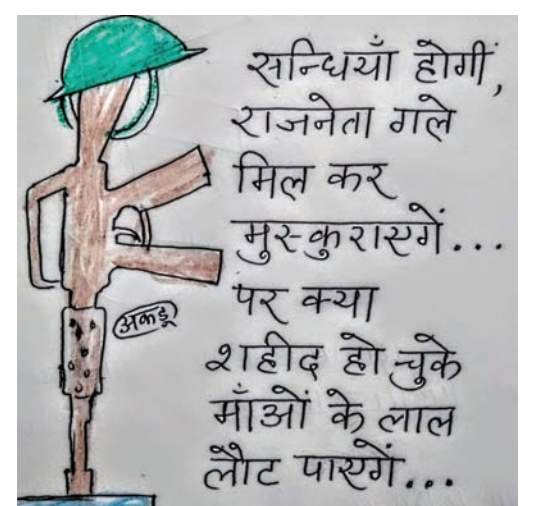 सन्धियाँ होगीं,
राजनेता गले
मिल कर
मुस्कुराएगें...
पर क्या
शहीद हो चुके
माँओं के लाल
लौट पाएगें...
अकडू